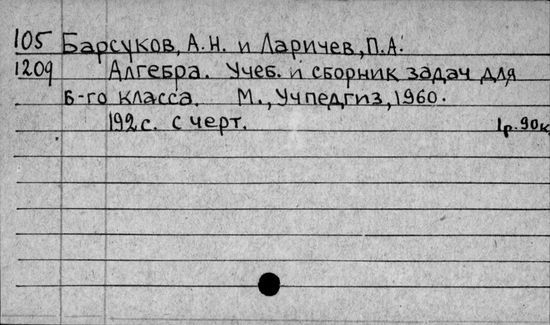 105 Барсуков, А.Н. и Ларичев, П.А.
1209 Алгебра. Учеб. и сборник задач для
6-го класса. М., Учпедгиз, 1960.
192 с. с черт. 1р. 90к.